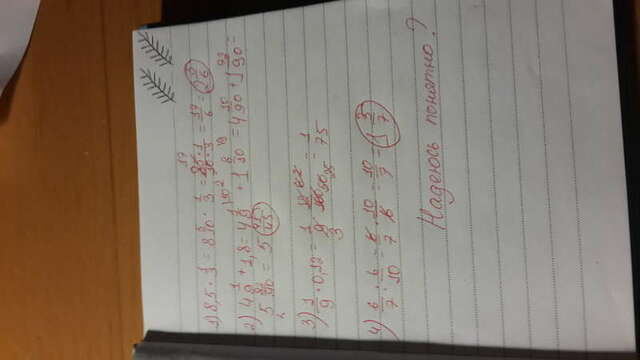 1) 8,5 · 1/3 = 8 5/10 · 1/3 = 85·1/10·3 = 17/6 = 2 5/6
2) 4 1/9 + 1,8 = 4 1/9 + 1 8/10 = 4 10/90 + 1 =
5 = 5
3) 1/9 · 0,12 = 1/9 · 12/100 = 1/75
4) 6/7 : 6/10 = 6/7 · 10/6 = 10/7 = 1 3/7
Надеюсь понятно?